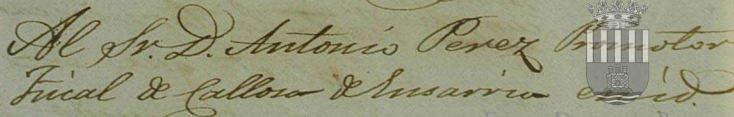 Al Sr. D. Antonio Perez Promotor
Fiscal de Callosa de Ensarria en id.